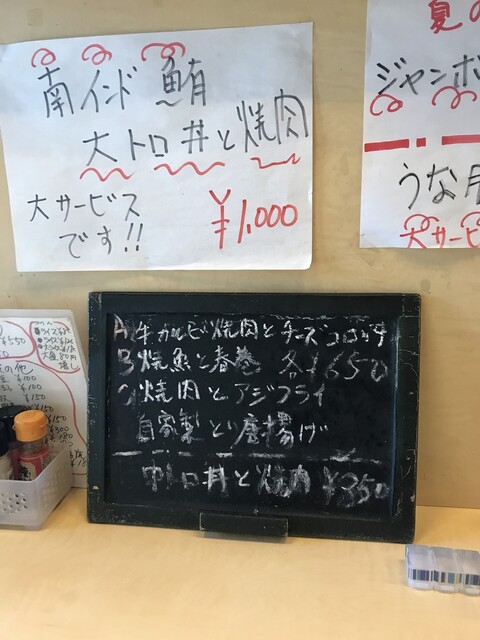 南インド鮪
大トロ丼と焼肉
大サービス
です!!
¥1,000
夏の
ジャンボ
うな
大サービ
A牛カルビ焼肉とチーズコロッケ
B焼魚と春巻 各¥650
C焼肉とアジフライ
自家製とり唐揚げ
中トロ丼と焼肉 ¥850
¥550
の他
¥100
¥100
¥150
¥150